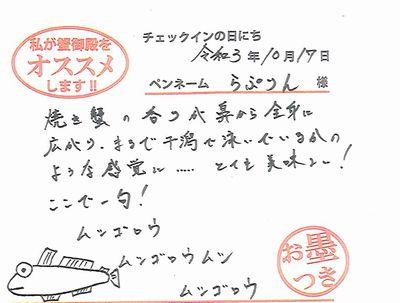 私が蟹御殿を
オススメ
します!!
チェックインの日にち
令和3年10月17日
ペンネーム らぷりん 様
焼き蟹の香りが鼻から全身に
広がり、まるで干潟で泳いでいるかの
ような感覚に…… とても美味しい!
ここで一句!
ムツゴロウ
ムツゴロウムツ
ムツゴロウ
お墨
つき